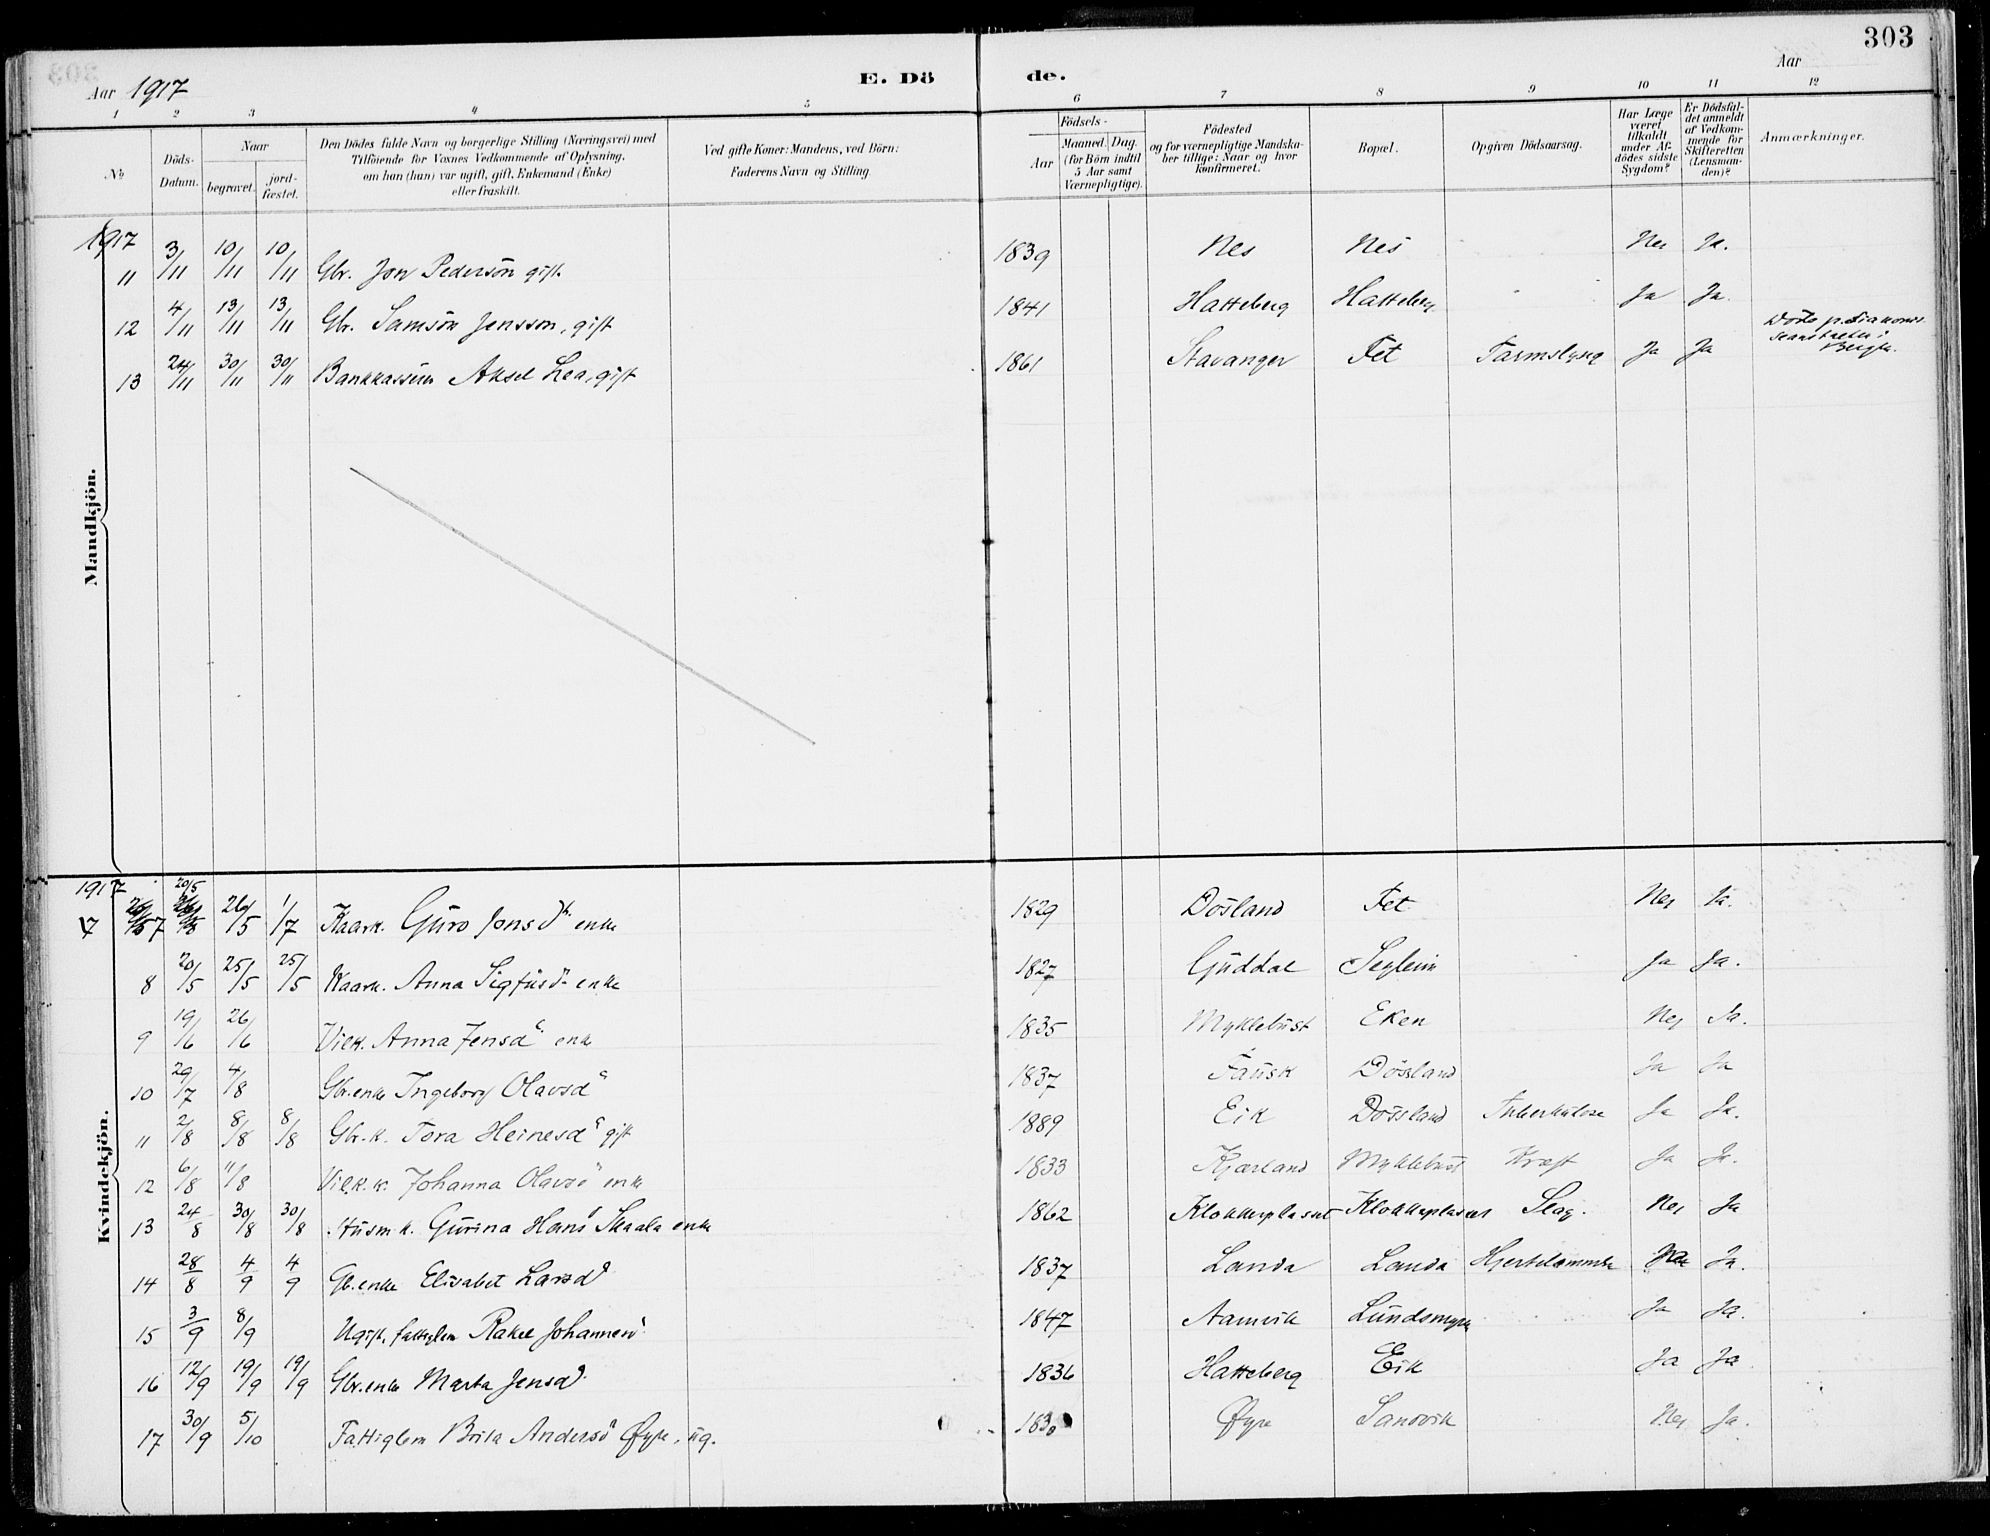 303
Aar 1917
E. Dö de.
Aar
1 2 3 4 5 6 7 8 9 10 11 12
No
Döds-Datum.
Naar
begravet.
jord-fæstet.
Den Dödes fulde Navn og borgerlige Stilling (Næringsvei) med
Tilföiende for Voxnes Vedkommende af Oplysning,
om han (hun) var ugift, gift, Enkemand (Enke)
eller fraskilt.
Ved gifte Koner: Mandens, ved Börn:
Faderens Navn og Stilling.
Födsels-
Aar
Maaned. Dag.
(for Börn indtil
5 Aar samt
Værnepligtige).
Födested
og for værnepligtige Mandska-
ber tillige: Naar og hvor
konfirmeret.
Bopæl.
Opgiven Dödsaarsag.
Har Læge
været
tilkaldt
under Af-
dödes sidste
Sygdom?
Er Dödsfal-
det anmeldt
af Vedkom-
mende for
Skifteretten
(Lensman-
den)?
Anmærkninger.
Mandkjön.
1917
11 3/11 10/11 10/11 Gbr. Jon Pederson gift 1839 Nes Nes Nei Ja.
12 4/11 13/11 13/11 Gbr. Samson Jensson, gift 1841 Hatteberg Hatteberg Ja Ja.
13 24/11 30/11 30/11 Bankkasserer Aksel Lea, gift 1861 Stavanger Fet Tarmslyng Ja Ja Döde p. Diakonis
seanstalten i
Bergen.
Kvindekjön.
1917
7 20/5 26/5 1/7 Kaark. Guro Jonsdr. enke 1829 Dösland Fet Nei Ja.
8 20/5 25/5 25/5 Kaark. Anna Sigfusdr enke 1827 Guddal Segleim Ja Ja.
9 19/6 26/6 Vilk. Anna Jensdr enke 1835 Myklebust Eken Nei Ja.
10 29/7 4/8 Gbr.enke Ingeborg Olavsdr 1837 Fausk Dössland Ja Ja
11 2/8 8/8 8/8 Gbr.k. Tora Heinesdr gift 1889 Eik Dössland Tuberkulose Ja Ja.
12 6/8 11/8 Vilk.k. Johanna Olavsdr enke 1833 Kjærland Myklebust Kræft Ja Ja.
13 24/8 30/8 30/8 Husmk. Gurina Hansdr Skaala enke 1862 Klokkerplaset Klokkeplaset Slag. Nei Ja
14 28/8 4/9 4/9 Gb.enke Elisabet Larsdr 1837 Landa Landa Hjertelammelse Ja.
15 3/9 8/9 Ugift, fattiglem Rakel Johannesdr 1847 Aamvik Lundsmyra Ja Ja.
16 12/9 19/9 19/9 Gbr.enke Marta Jensdr 1836 Hatteberg Eik Ja Ja
17 30/9 5/10 Fattiglem Brita Andersdr Øyre, ug. 1830 Øyre Sandvik Nei Ja.